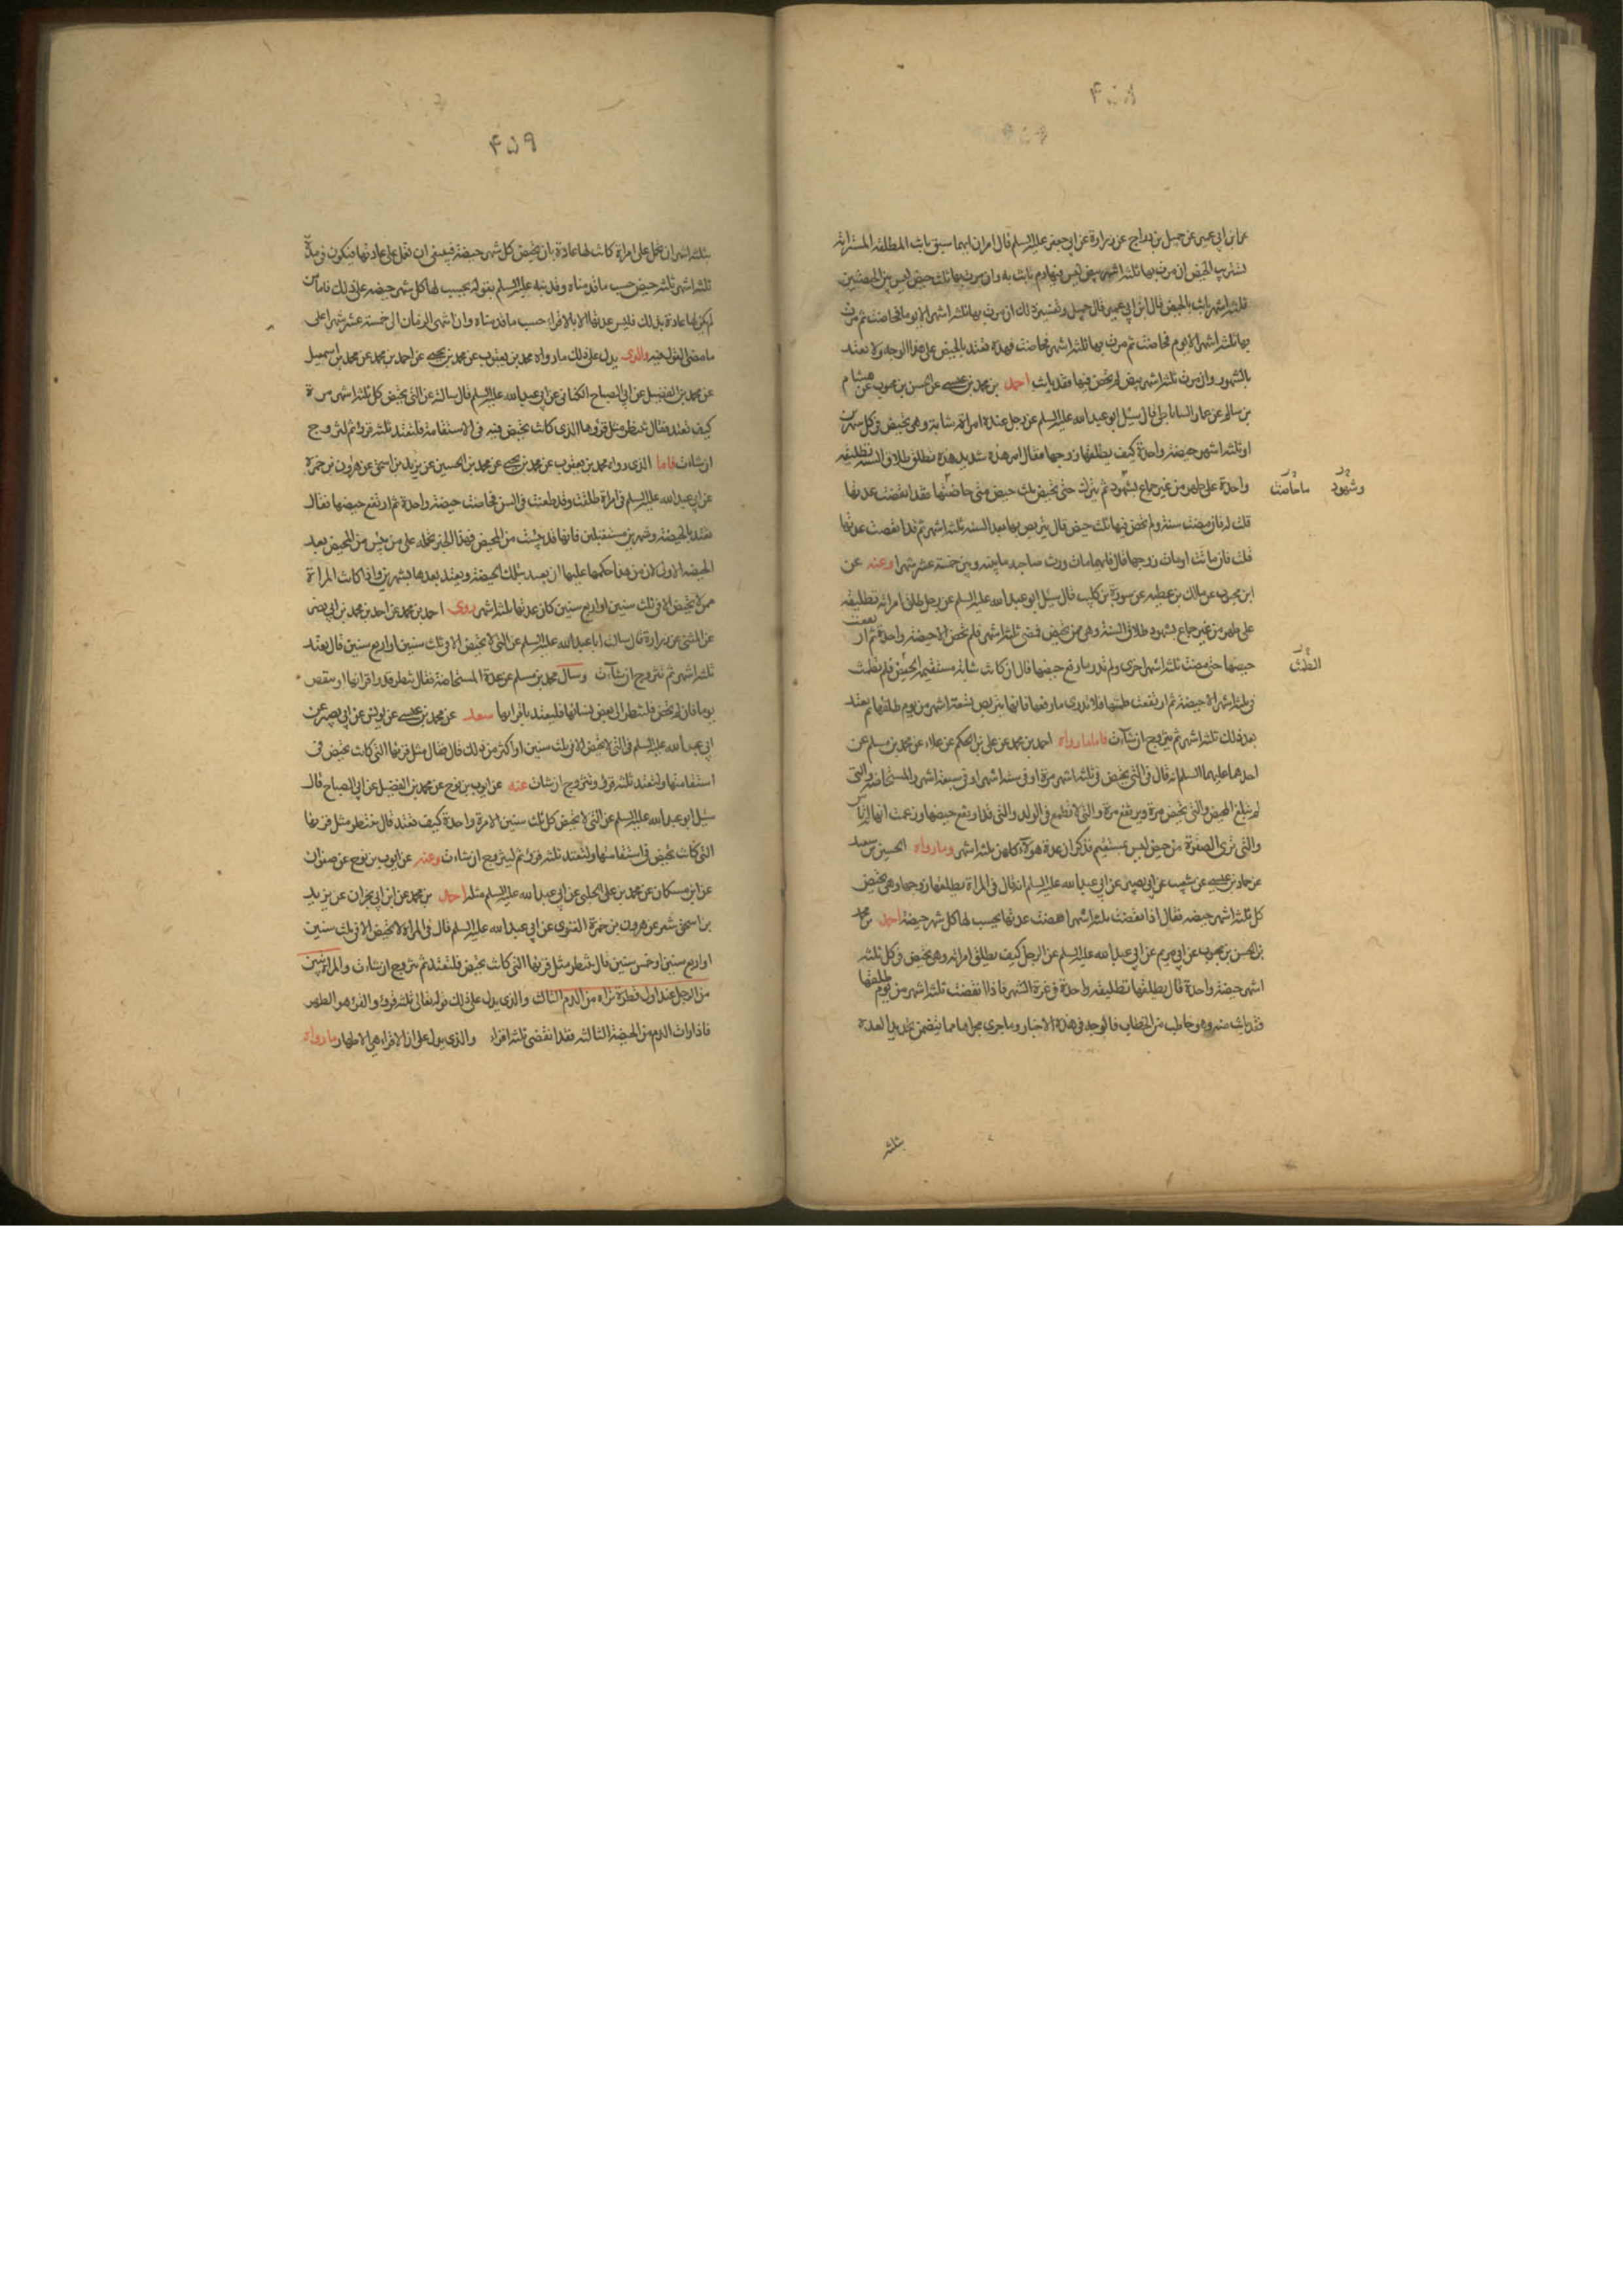 ۴۵۸
عن ابن ابي عمير عن جميل بن دراج عن زرارة عن ابي جعفر عليه السلم قال امران ايهما سبق بانت المطلقه المسترابه
تستريب الحيض ان مرت بها ثلثه اشهر بيض ليس فيها دم بانت به وان مرت بها ثلث حيض ليس بين الحيضتين
ثلثه اشهر بانت بالحيض قال ابن ابي عمير قال جميل وتفسير ذلك ان مرت بها ثلثه اشهر الا يوما فحاضت ثم مرت
بها ثلثه اشهر الا يوم فحاضت ثم مرت بها ثلثه اشهر فحاضت فهذه تعتد بالحيض على هذا الوجه ولا تعتد
بالشهور وان مرت ثلثه اشهر بيض لم تحض فيها فقد بانت احمد بن محمد بن عيسى عن الحسن بن محبوب عن هشام
بن سالم عن عمار الساباطي قال سئل ابو عبد الله عليه السلم عن رجل عنده امراة شابة وهي تحيض في كل شهرين
او ثلثه اشهر حيضة واحدة كيف يطلقها زوجها فقال امر هذه شديد هذه تطلق طلاق السنه تطليقه
واحدة على طهر من غير جماع بشهود ثم تترك حتى تحيض ثلث حيض متى حاضتها فقد انقضت عدتها
وشهود
ما حاضت
قلت له فان مضت سنة ولم تحض فيها ثلث حيض قال يتربص بها بعد السنه ثلثه اشهر ثم قد انقضت عدتها
قلت فان ماتت او مات زوجها قال فايهما مات ورث صاحبه ما بينه وبين خمسة عشر شهرا وعنه عن
ابن محبوب عن مالك بن عطيه عن سورة بن كليب قال سئل ابو عبد الله عليه السلم عن رجل طلق امراته تطليقه
على طهر من غير جماع بشهود طلاق السنة وهي ممن تحيض فمضى ثلثه اشهر فلم تحض الا حيضة واحدة ثم ارتفعت
حيضها حتى مضت ثلثه اشهر اخرى ولم تدر ما رفع حيضها قال ان كانت شابة مستقيمة الحيض فلم تطمث
الطمث
في ثلثه اشهر الا حيضة ثم ارتفعت طمثها فلا تدري ما رفعها فانها تتربص تسعة اشهر من يوم طلقها ثم تعتد
بعد ذلك ثلثة اشهر ثم تتزوج ان شاءت فاما ما رواه احمد بن محمد عن علي بن الحكم عن علاء عن محمد بن مسلم عن
احدهما عليهما السلم انه قال في التي تحيض في ثلثه اشهر مرة او في ستة اشهر او في سبعة اشهر والمستحاضه والتي
لم تبلغ المحيض والتي تحيض مرة ويرتفع مرة والتي لا تطمع في الولد والتي قد ارتفع حيضها وزعمت انها لم تياس
والتي ترى الصفرة من حيض ليس بمستقيم فذكر ان عدة هؤلاء كلهن ثلثه اشهر وما رواه الحسين بن سعيد
عن حماد بن عيسى عن شعيب عن ابي بصير عن ابي عبد الله عليه السلم انه قال في المراة يطلقها زوجها وهي تحيض
كل ثلثه اشهر حيضه فقال اذا انقضت ثلثه اشهر انقضت عدتها يحسب لها كل شهر حيضة احمد بن محمد
بن الحسن بن محبوب عن ابي مريم عن ابي عبد الله عليه السلم عن الرجل كيف يطلق امراته وهي تحيض في كل ثلثه
اشهر حيضة واحدة قال يطلقها تطليقه واحدة في غرة الشهر فاذا انقضت ثلثه اشهر من يوم طلقها
فقد بانت منه وهو خاطب من الخطاب فالوجه في هذه الاخبار وما جرى مجراها مما يتضمن تحديد العدة
بثلثه
۴۵۹
بثلثه اشهر ان نحمل على امراة كانت لها عادة بان تحيض كل شهر حيضة فينبغي ان تعمل على عادتها فيكون في مدة
ثلثه اشهر ثلثه حيض حسب ما قدمناه وقد نبه عليه السلم بقوله يحسب لها كل شهر حيضه على ذلك فاما من
لم تكن لها عادة بذلك فليس عدتها الا بالاقراء حسب ما قدمناه وان انتهى الزمان الى خمسة عشر شهرا على
ما مضى القول فيه والذي يدل على ذلك ما رواه محمد بن يعقوب عن محمد بن يحيى عن احمد بن محمد عن محمد بن اسمعيل
عن محمد بن الفضيل عن ابي الصباح الكناني عن ابي عبد الله عليه السلم قال سالته عن التي تحيض كل ثلثه اشهر مرة
كيف تعتد فقال تنتظر مثل قروها الذي كانت تحيض فيه في الاستقامة فلتعتد ثلثه قروء ثم لتزوج
ان شاءت فاما الذي رواه محمد بن يعقوب عن محمد بن يحيى عن محمد بن الحسين عن يزيد بن اسحق عن هرون بن حمزة
عن ابي عبد الله عليه السلم في امراة طلقت وقد طعنت في السن فحاضت حيضة واحدة ثم ارتفع حيضها فقال
تعتد بالحيضة وشهرين مستقبلين فانها قد يئست من المحيض فهذا الخبر نحمله على من يئس من المحيض بعد
الحيضه الاولى لان من هذا حكمها عليها ان تعتد بتلك الحيضة وتعتد بعدها بشهرين واذا كانت المراة
ممن لا تحيض الا في ثلث سنين او اربع سنين كان عدتها ثلثه اشهر روى احمد بن محمد عن احمد بن محمد بن ابي نصر
عن المثنى عن زرارة قال سالت ابا عبد الله عليه السلم عن التي لا تحيض الا في ثلث سنين او اربع سنين قال تعتد
ثلثه اشهر ثم تتزوج ان شاءت وسال محمد بن مسلم عن عدة المستحاضة فقال تنتظر قدر اقرائها او تنقص
يوما فان لم تحض فلتنظر الى بعض نسائها فليعتد باقرائها سعد عن محمد بن عيسى عن يونس عن ابي بصير عن
ابي عبد الله عليه السلم في التي لا تحيض الا في ثلث سنين او اكثر من ذلك قال فقال مثل قرئها التي كانت تحيض في
استقامتها ولتعتد ثلثه قروء وتتزوج ان شاءت عنه عن ايوب بن نوح عن محمد بن الفضيل عن ابي الصباح قال
سئل ابو عبد الله عليه السلم عن التي لا تحيض كل ثلث سنين الا مرة واحدة كيف تعتد قال تنتظر مثل قرئها
التي كانت تحيض في استقامتها ولتعتد ثلثه قروء ثم ليتزوج ان شاءت وعنه عن ايوب بن نوح عن صفوان
عن ابن مسكان عن محمد بن علي الحلبي عن ابي عبد الله عليه السلم مثله احمد بن محمد عن ابن ابي نجران عن يزيد
بن اسحق شعر عن هرون بن حمزة الغنوي عن ابي عبد الله عليه السلم قال في المراة لا تحيض الا في ثلث سنين
او اربع سنين او خمس سنين قال تنتظر مثل قرئها التي كانت تحيض فلتعتد ثم تتزوج ان شاءت والمراة تبين
من الرجل عند اول قطرة تراه من الدم الثالث والذي يدل على ذلك قوله تعالى ثلثه قروء والقرء هو الطهر
فاذا رات الدم من الحيضة الثالثه فقد انقضى ثلثه اقراء والذي يدل على ان الاقراء هي الاطهار ما رواه